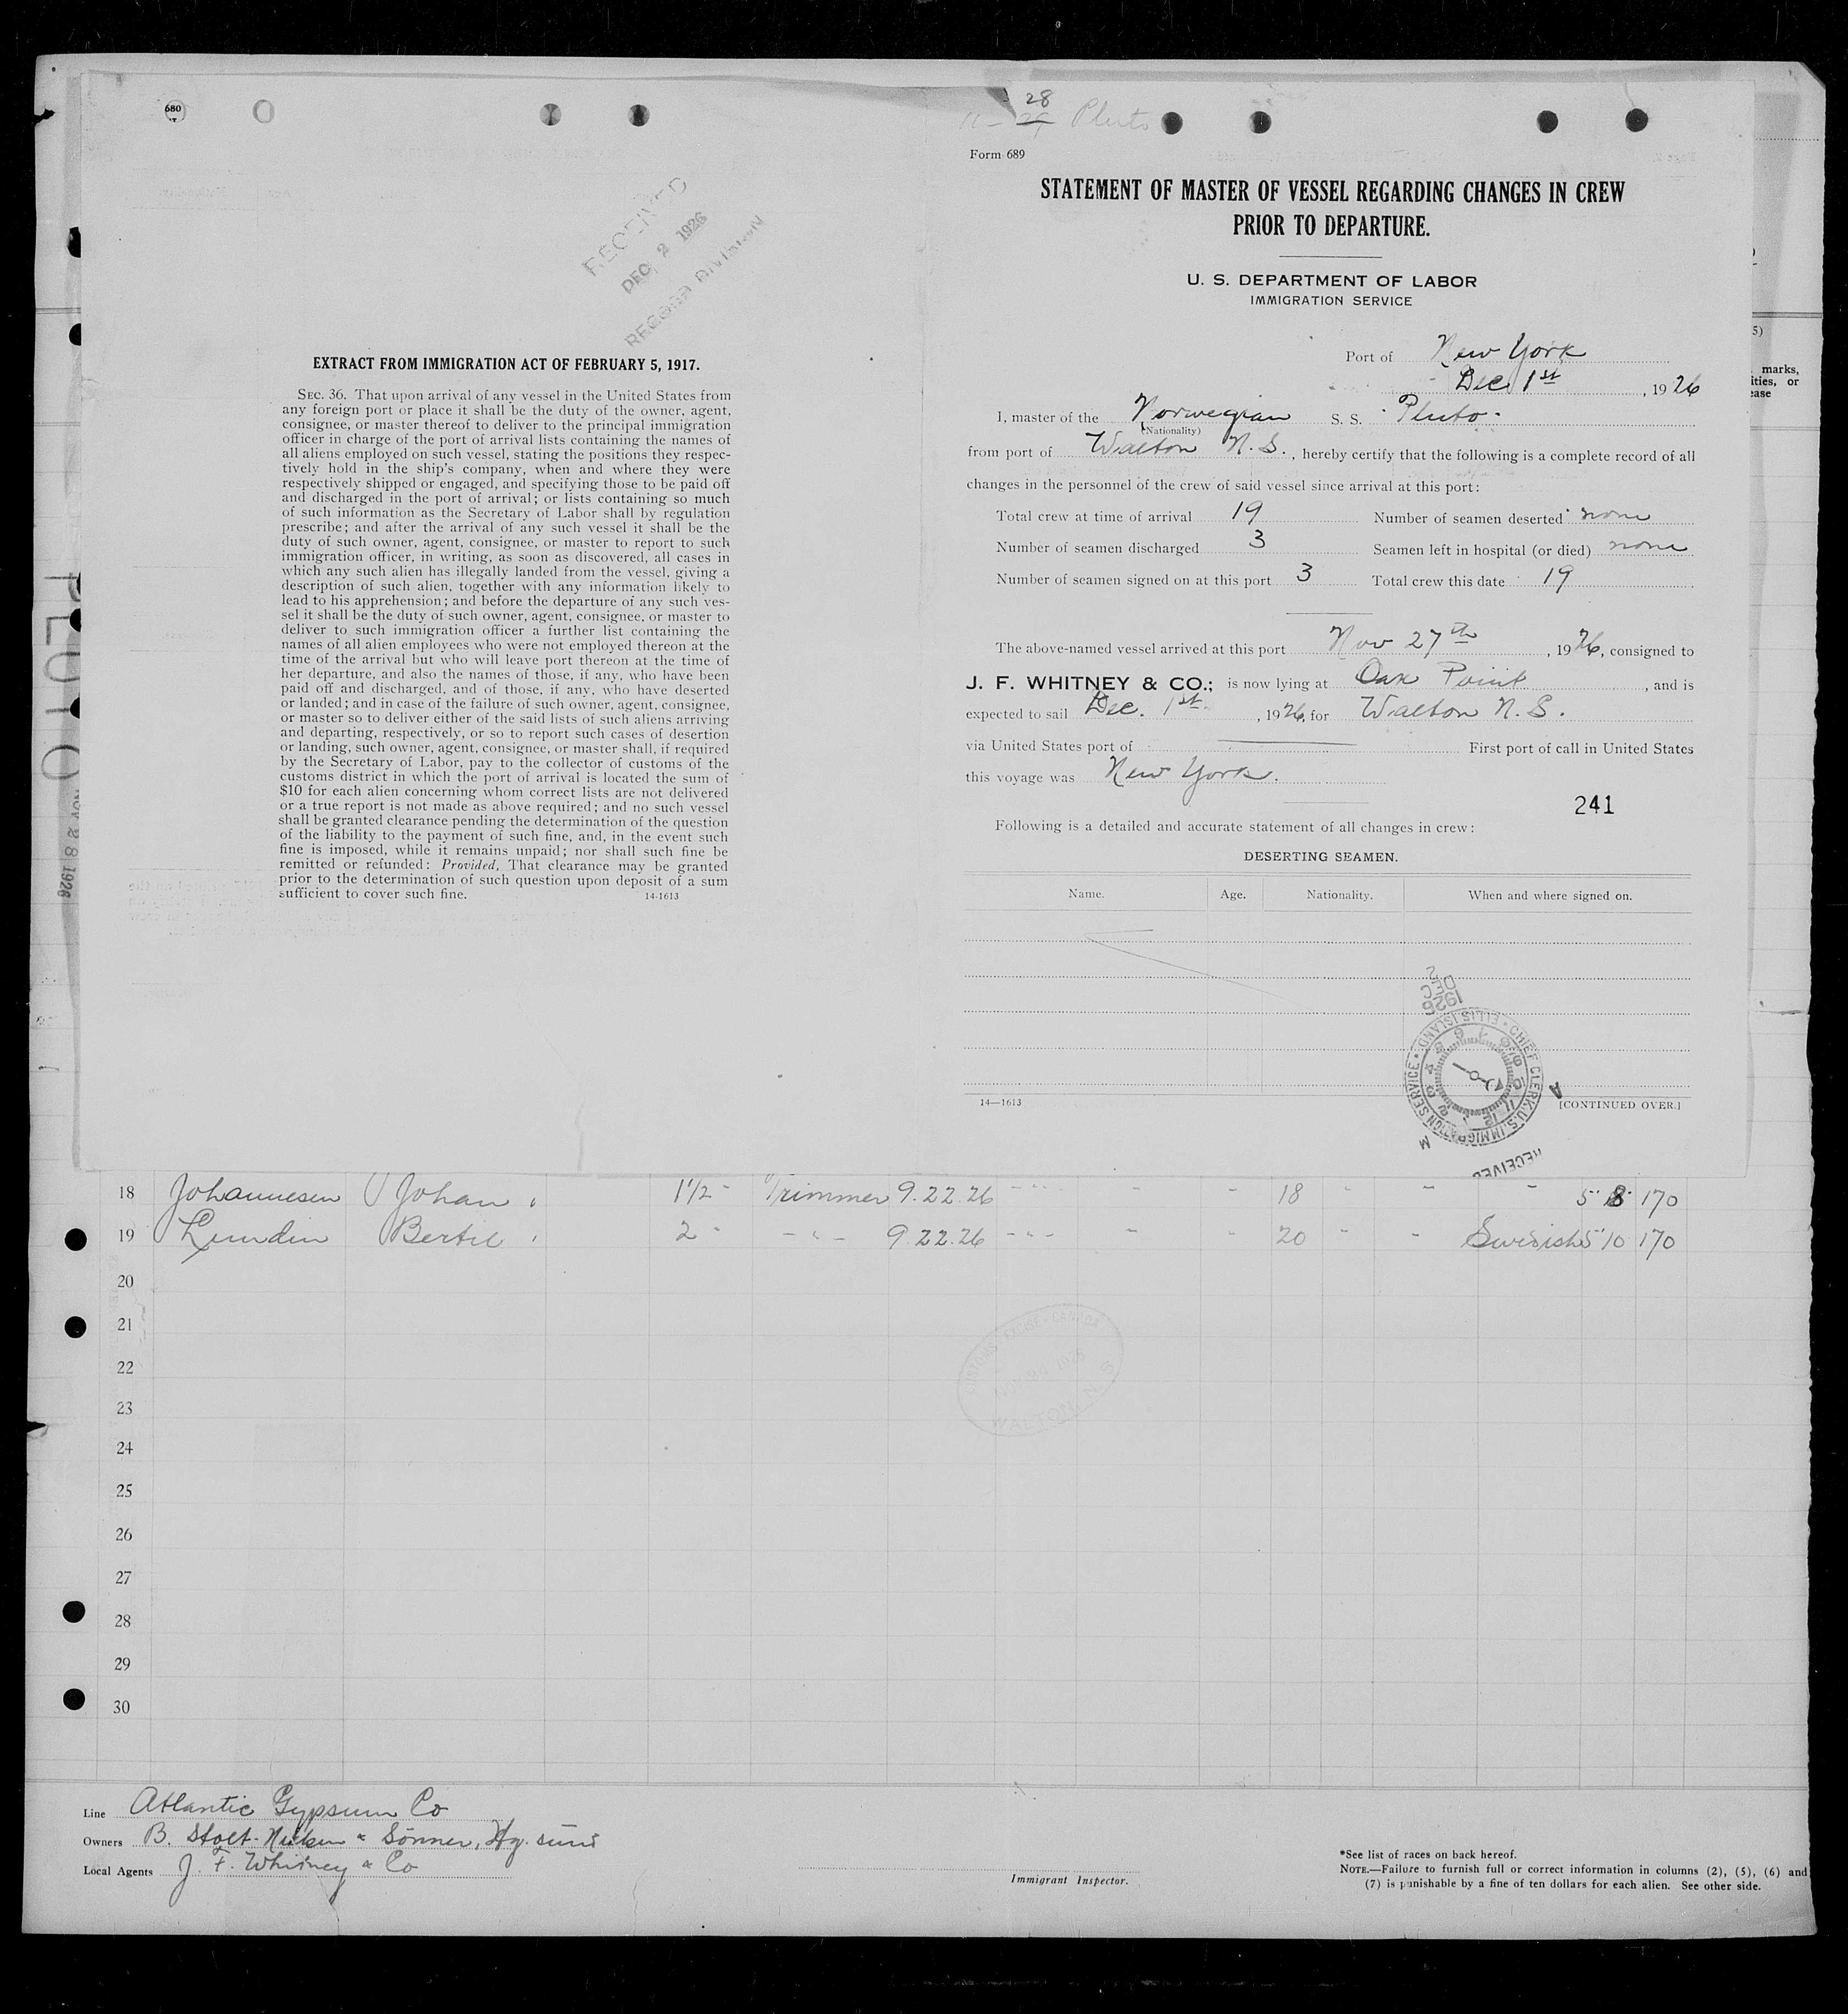 680
RECEIVED
DEC 2 1926
RECORD DIVISION
EXTRACT FROM IMMIGRATION ACT OF FEBRUARY 5, 1917.
SEC. 36. That upon arrival of any vessel in the United States from
any foreign port or place it shall be the duty of the owner, agent,
consignee, or master thereof to deliver to the principal immigration
officer in charge of the port of arrival lists containing the names of
all aliens employed on such vessel, stating the positions they respec-
tively hold in the ship's company, when and where they were
respectively shipped or engaged, and specifying those to be paid off
and discharged in the port of arrival; or lists containing so much
of such information as the Secretary of Labor shall by regulation
prescribe; and after the arrival of any such vessel it shall be the
duty of such owner, agent, consignee, or master to report to such
immigration officer, in writing, as soon as discovered, all cases in
which any such alien has illegally landed from the vessel, giving a
description of such alien, together with any information likely to
lead to his apprehension; and before the departure of any such ves-
sel it shall be the duty of such owner, agent, consignee, or master to
deliver to such immigration officer a further list containing the
names of all alien employees who were not employed thereon at the
time of the arrival but who will leave port thereon at the time of
her departure, and also the names of those, if any, who have been
paid off and discharged, and of those, if any, who have deserted
or landed; and in case of the failure of such owner, agent, consignee,
or master so to deliver either of the said lists of such aliens arriving
and departing, respectively, or so to report such cases of desertion
or landing, such owner, agent, consignee, or master shall, if required
by the Secretary of Labor, pay to the collector of customs of the
customs district in which the port of arrival is located the sum of
$10 for each alien concerning whom correct lists are not delivered
or a true report is not made as above required; and no such vessel
shall be granted clearance pending the determination of the question
of the liability to the payment of such fine, and, in the event such
fine is imposed, while it remains unpaid; nor shall such fine be
remitted or refunded: Provided, That clearance may be granted
prior to the determination of such question upon deposit of a sum
sufficient to cover such fine. 14-1613
PLUTO NOV 28 1926
28
11-29 Pluto
Form 689
STATEMENT OF MASTER OF VESSEL REGARDING CHANGES IN CREW
PRIOR TO DEPARTURE.
U. S. DEPARTMENT OF LABOR
IMMIGRATION SERVICE
Port of New York
Dec. 1st, 1926
I, master of the Norwegian S. S. Pluto
(Nationality)
from port of Walton N. S., hereby certify that the following is a complete record of all
changes in the personnel of the crew of said vessel since arrival at this port:
Total crew at time of arrival 19 Number of seamen deserted none
Number of seamen discharged 3 Seamen left in hospital (or died) none
Number of seamen signed on at this port 3 Total crew this date 19
The above-named vessel arrived at this port Nov 27th, 1926, consigned to
J. F. WHITNEY & CO.; is now lying at Oak Point, and is
expected to sail Dec. 1st, 1926, for Walton N. S.
via United States port of First port of call in United States
this voyage was New York.
241
Following is a detailed and accurate statement of all changes in crew:
DESERTING SEAMEN.
Name. Age. Nationality. When and where signed on.
1926 DEC 2
CHIEF CLERK U.S. IMMIGRATION SERVICE • ELLIS ISLAND •
A M
RECEIVED
14—1613 [CONTINUED OVER.]
5)
marks,
ities, or
ease
18 Johannesen Johan 1 1/2 Trimmer 9.22.26 - " - - - 18 - - - 5 8 170
19 Lundin Bertil 2 - " - 9.22.26 - " - - - 20 - - Swedish 5 10 170
20
21
22
23
24
25
26
27
28
29
30
CUSTOMS EXCISE CANADA
WALTON N.S
Line Atlantic Gypsum Co
Owners B. Stolt-Nielsen & Sönner, Hg.sund
Local Agents J. F. Whitney & Co
Immigrant Inspector.
*See list of races on back hereof.
NOTE.—Failure to furnish full or correct information in columns (2), (5), (6) and
(7) is punishable by a fine of ten dollars for each alien. See other side.